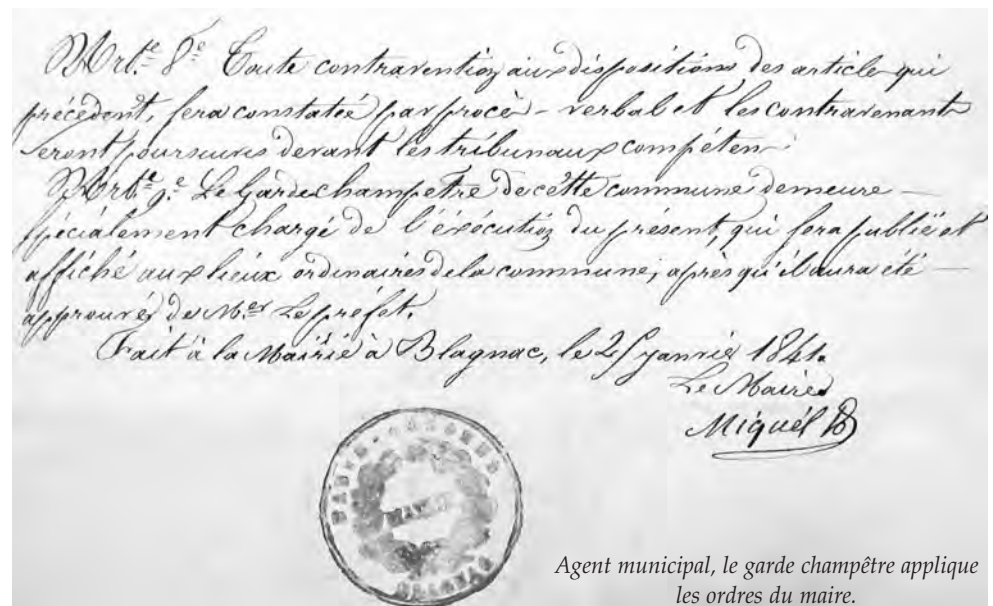 Art.e 8.e Toute contravention aux dispositions des article qui
précédent, sera constatée par procè-verbal et les contravenant
seront poursuivis devant les tribunaux compéten.
Art.e 9.e Le Garde champetre de cétte commune demeure
spécialement chargé de l'éxécution du présent, qui sera publié et
affiché aux lieux ordinaires de la commune, après qu'il aura été
approuvé de M.er Le préfet.
Fait à la Mairie à Blagnac, le janvié 1841.
Le Maire
Miquél
HAUTE-GARONNE
MAIRIE
BLAGNAC
Agent municipal, le garde champêtre applique
les ordres du maire.